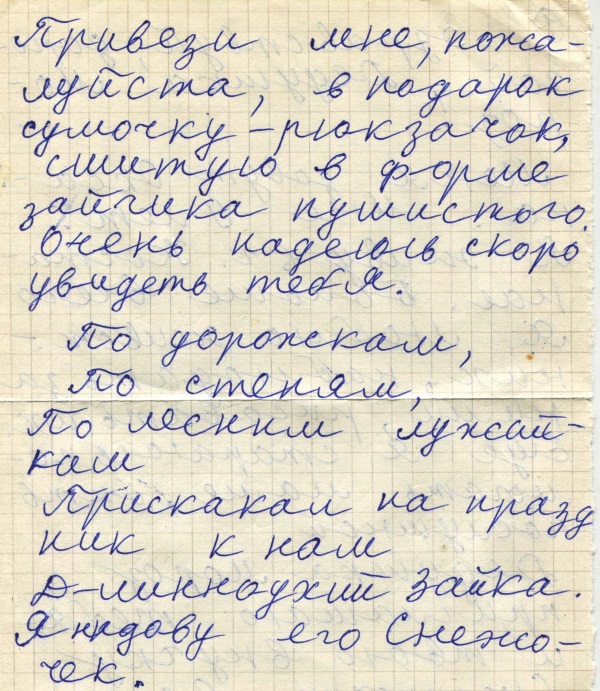 Привези мне, пожа-
луйста, в подарок
сумочку-рюкзачок,
сшитую в форме
зайчика пушистого.
Очень надеюсь скоро
увидеть тебя.
По дорожкам,
По степям,
По лесним лужай-
кам
Прискакал на празд
ник к нам
Д-линноухий зайка.
Я
его Снежо-
чек.